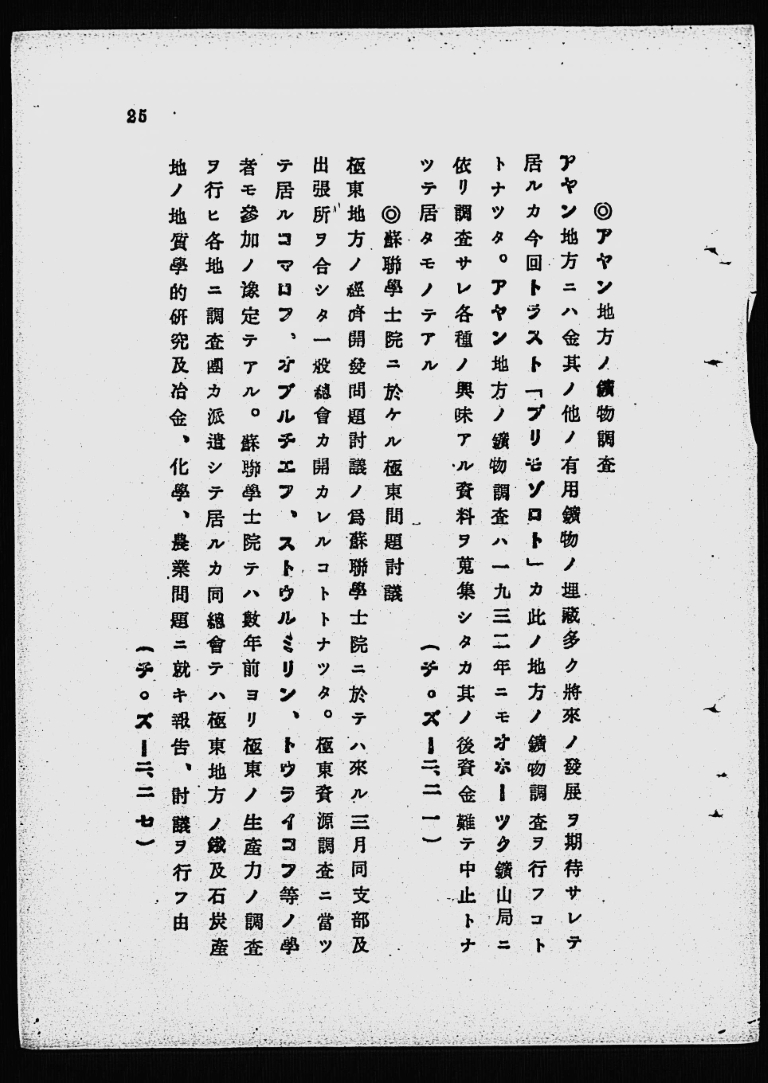 ◎アヤン地方ノ鑛物調査
アヤン地方ニハ金其ノ他ノ有用鑛物ノ埋藏多ク將來ノ發展ヲ期待サレテ
居ルカ今回トラスト「プリモゾロト」カ此ノ地方ノ鑛物調査ヲ行フコト
トナツタ。アヤン地方ノ鑛物調査ハ一九三二年ニモオホーツク鑛山局ニ
依リ調査サレ各種ノ興味アル資料ヲ蒐集シタカ其ノ後資金難テ中止トナ
ツテ居タモノテアル
(チ。ズー二、二一)
◎蘇聯學士院ニ於ケル極東問題討議
極東地方ノ經濟開發問題討議ノ爲蘇聯學士院ニ於テハ來ル三月同支部及
出張所ヲ合シタ一般總會カ開カレルコトトナツタ。極東資源調査ニ當ツ
テ居ルコマロフ、オブルチエフ、ストウルミリン、トウライコフ等ノ學
者モ參加ノ豫定テアル。蘇聯學士院テハ數年前ヨリ極東ノ生產力ノ調査
ヲ行ヒ各地ニ調査團カ派遣シテ居ルカ同總會テハ極東地方ノ鐵及石炭產
地ノ地質學的硏究及冶金、化學、農業問題ニ就キ報告、討議ヲ行フ由
(チ。ズー二、二七)
25